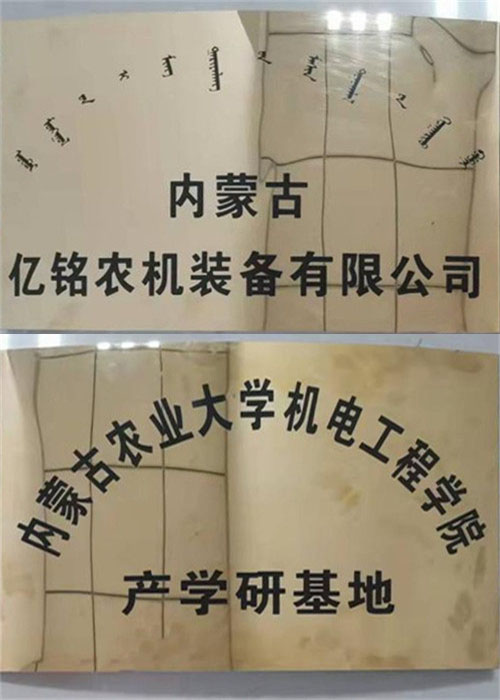 内蒙古
亿铭农机装备有限公司
内蒙古农业大学机电工程学院
产学研基地